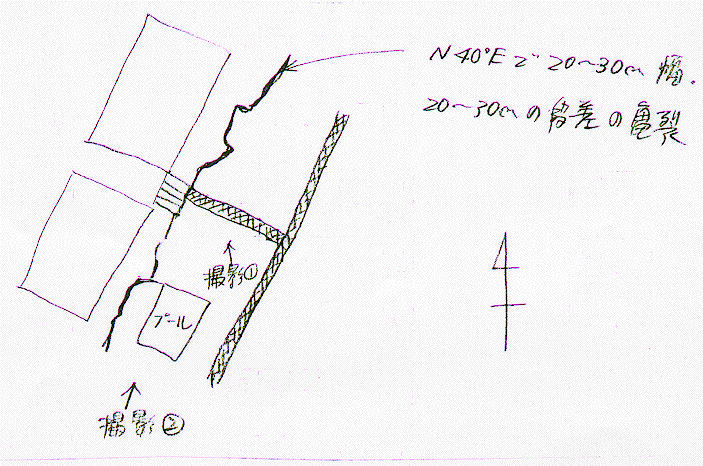 N40°Eで20〜30cm幅.
20〜30cmの段差の亀裂
撮影①
プール
撮影②